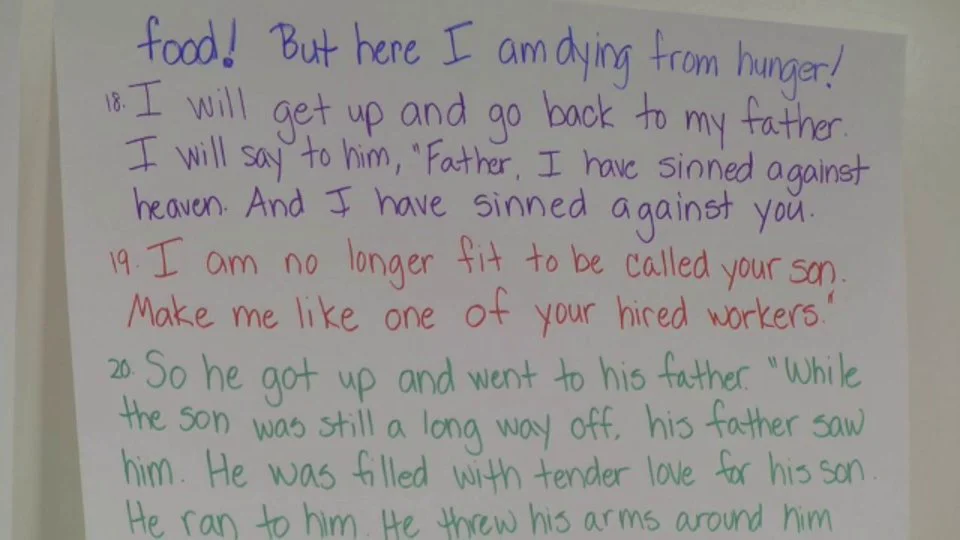 food! But here I am dying from hunger!
18. I will get up and go back to my father.
I will say to him, "Father, I have sinned against
heaven. And I have sinned against you.
19. I am no longer fit to be called your son.
Make me like one of your hired workers."
20. So he got up and went to his father. "While
the son was still a long way off, his father saw
him. He was filled with tender love for his son.
He ran to him. He threw his arms around him